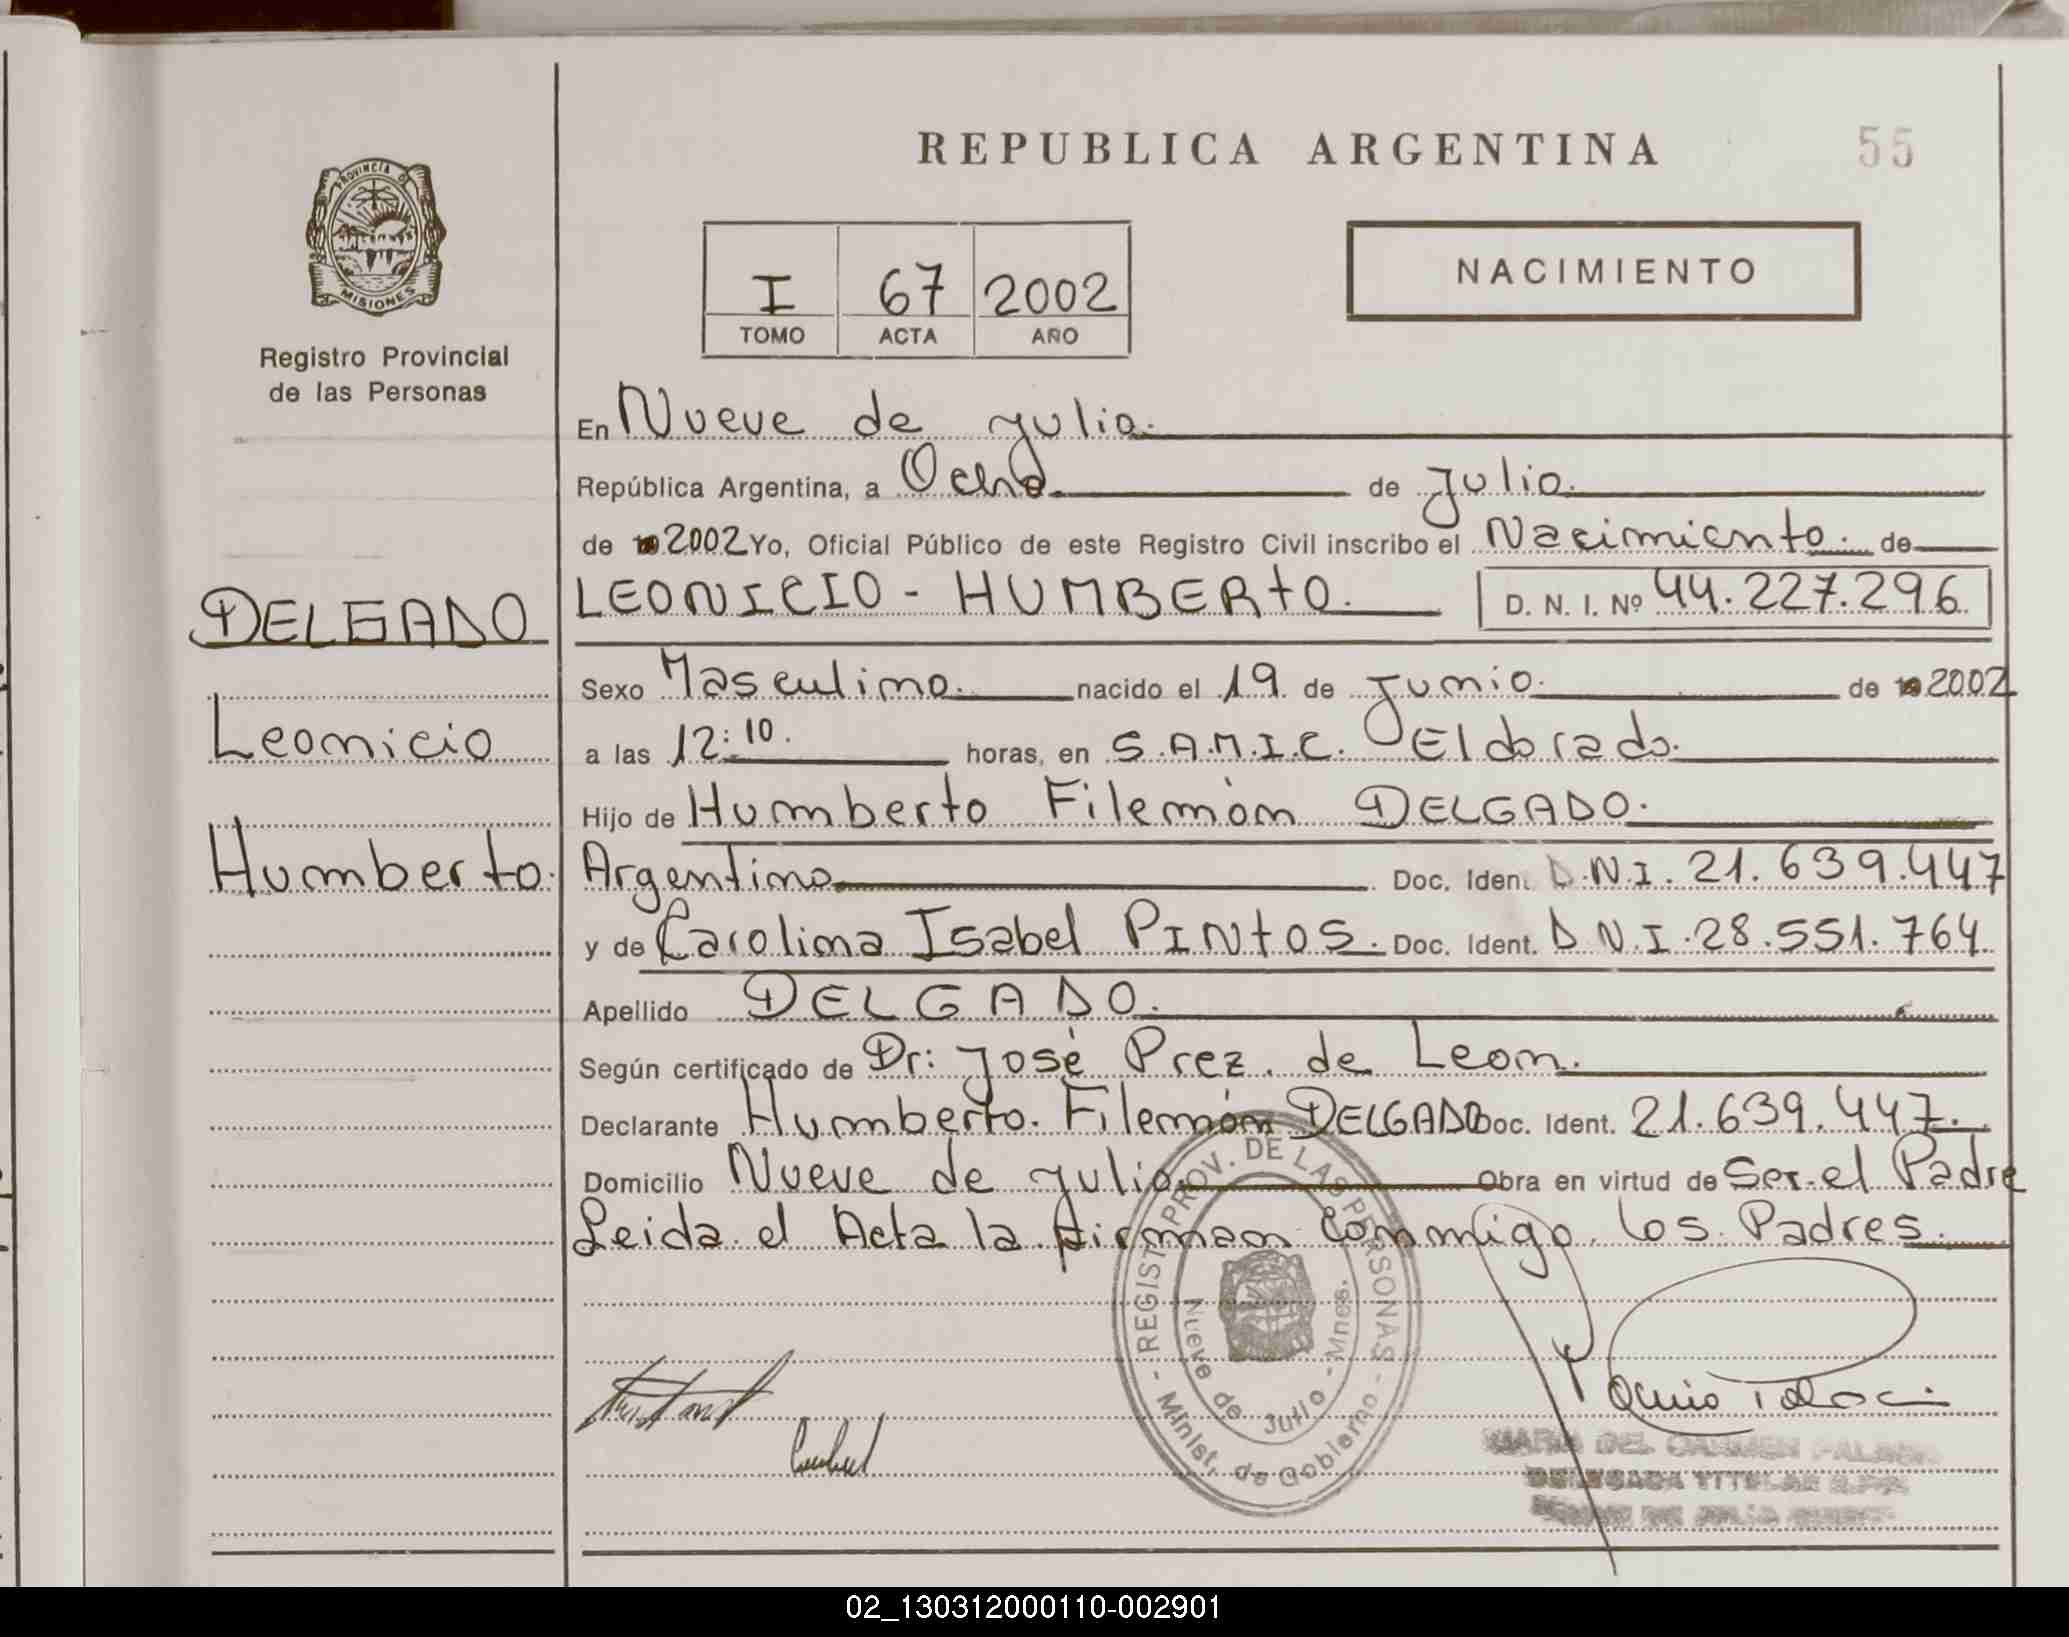 REPUBLICA ARGENTINA
55
PROVINCIA DE
MISIONES
Registro Provincial
de las Personas
I 67 2002
TOMO ACTA AÑO
NACIMIENTO
En Nueve de Julio.
República Argentina, a Ocho. de Julio.
de 2002 Yo, Oficial Público de este Registro Civil inscribo el Nacimiento. de
LEONICIO - HUMBERTO. D. N. I. Nº 44.227.296
DELGADO
Leonicio
Humberto.
Sexo Masculino. nacido el 19 de Junio. de 2002
a las 12:10. horas, en S.A.M.I.C. Eldorado.
Hijo de Humberto Filemón DELGADO.
Argentino Doc. Ident. D.N.I. 21.639.447
y de Carolina Isabel PINTOS. Doc. Ident. D.N.I. 28.551.764
Apellido DELGADO.
Según certificado de Dr: José Prez. de Leon.
Declarante Humberto. Filemón DELGADO Doc. Ident. 21.639.447.
Domicilio Nueve de Julio. Obra en virtud de Ser el Padre
Leida el Acta la firman conmigo los Padres.
- REGIST. PROV. DE LAS PERSONAS -
Minist. de Gobierno
Nueve de Julio - Mnes.
MARIA DEL CARMEN
DELEGADA TITULAR
02_130312000110-002901